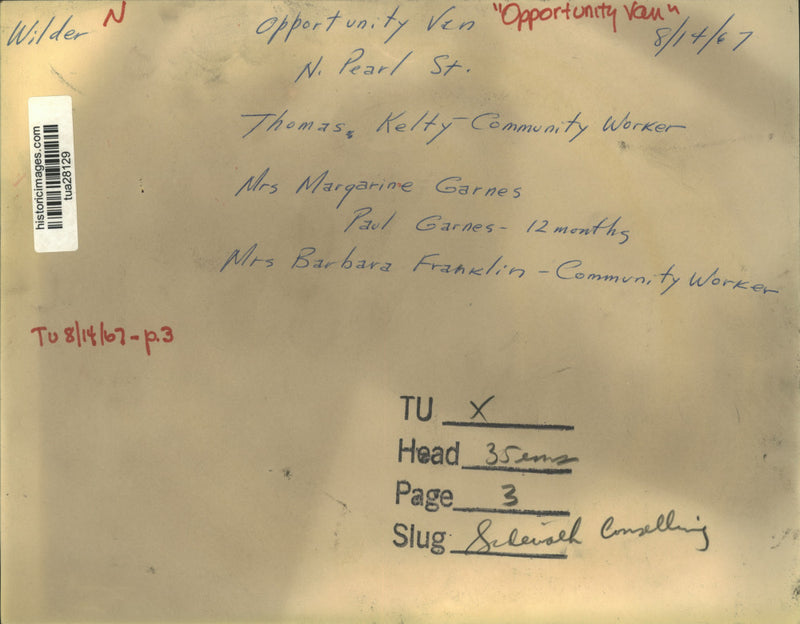 Wilder N Opportunity Van "Opportunity Van" 8/14/67
N. Pearl St.
Thomas Kelty - Community Worker
Mrs Margarine Garnes
Paul Garnes - 12 months
Mrs Barbara Franklin - Community Worker
historicimages.com
tua28129
TU 8/14/67 - p.3
TU X
Head 35 ems
Page 3
Slug